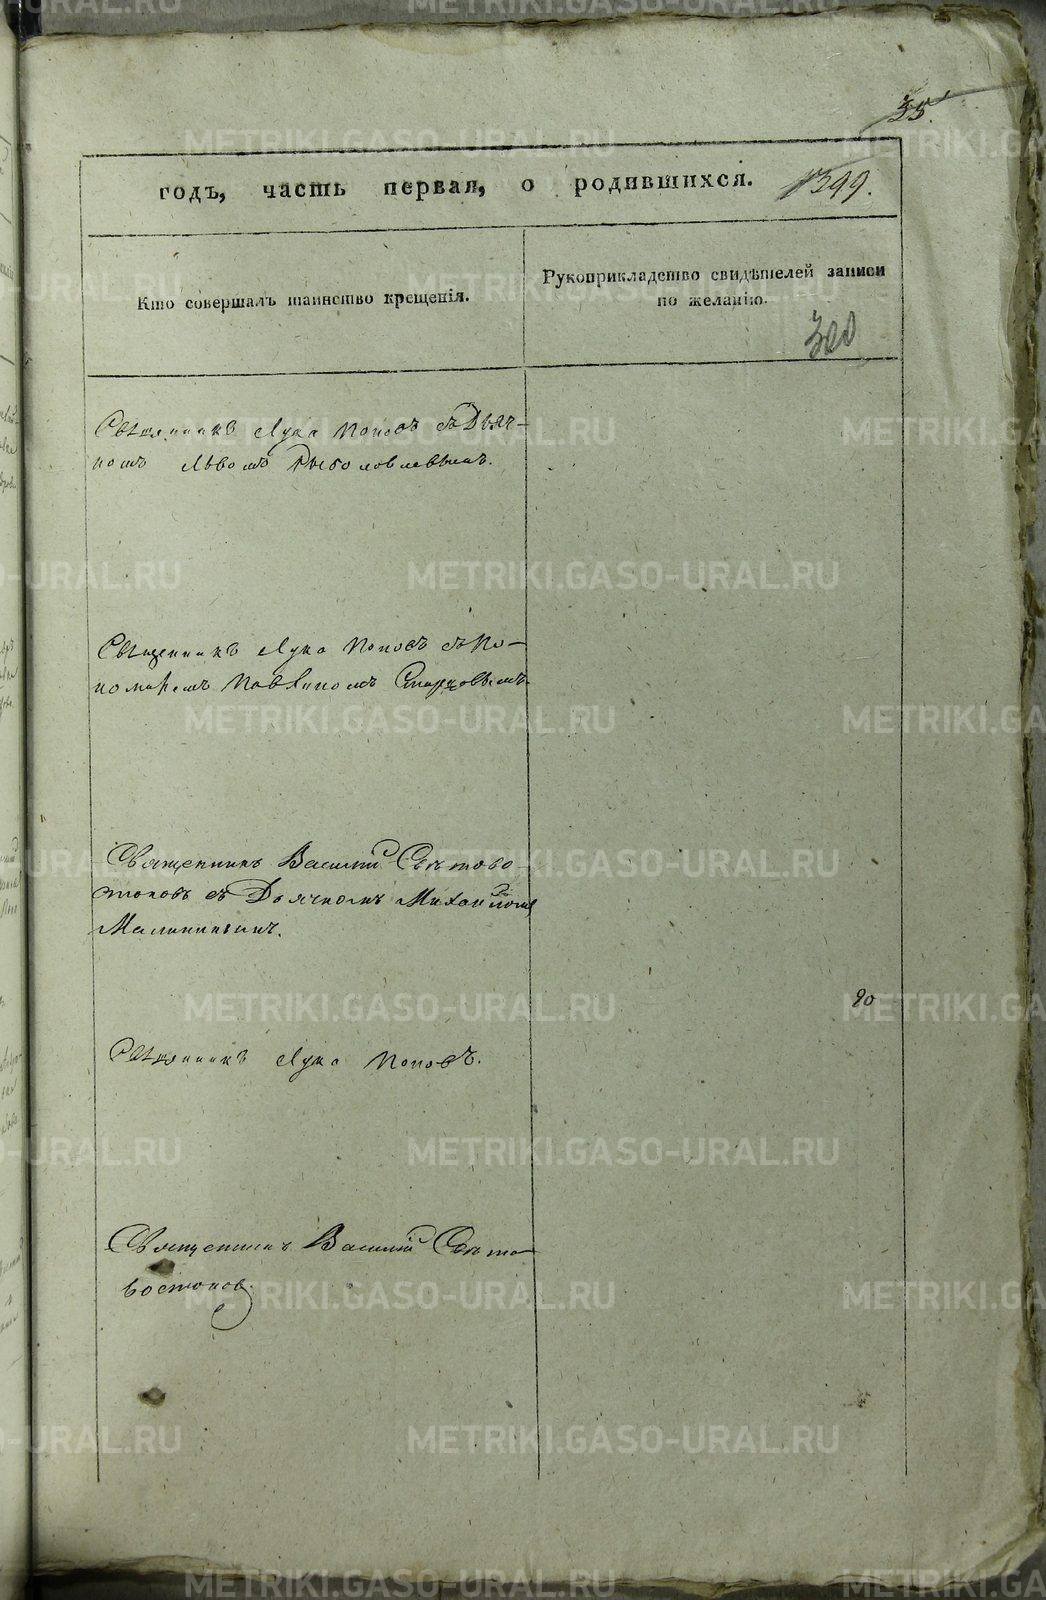 35.
годъ, часть первая, о родившихся. 1399.
Кто совершалъ таинство крещенія.
Рукоприкладство свидѣтелей записи
по желанію.
300
Священникъ Лука Поповъ съ Дьяч-
комъ Львомъ Рыболовлевымъ.
Священникъ Лука Поповъ съ По-
номаремъ Павлиномъ Старцовымъ.
Священникъ Василій Свѣтово-
стоковъ съ Дьячкомъ Михаиломъ
Малининымъ.
20
Священникъ Лука Поповъ.
Священникъ Василій Свѣто-
востоковъ.
METRIKI.GASO-URAL.RU